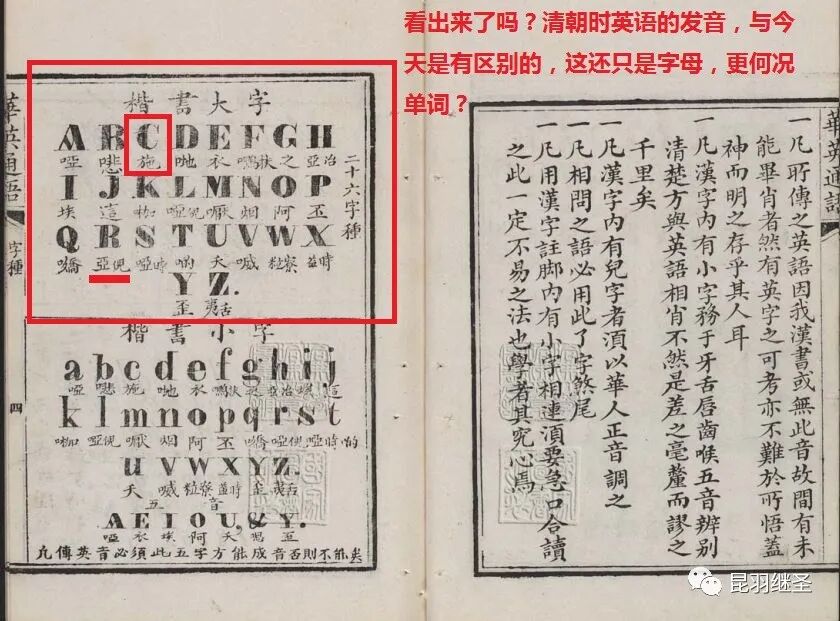 看出来了吗？清朝时英语的发音，与今
天是有区别的，这还只是字母，更何况
单词？
一凡所傳之英語因我漢書或無此音故間有未
能畢肖者然有英字之可考亦不難於所悟蓋
神而明之存乎其人耳
一凡漢字內有小字務于牙舌唇齒喉五音辨别
清楚方與英語相肖不然是差之毫釐而謬之
千里矣
一凡漢字內有兒字者須以華人正音調之
一凡相問之語必用此了字煞尾
一凡用漢字註脚內有小字相連須要急口合讀
之此一定不易之法也學者其究心焉
華英通語
華英通語
字種
四
楷書大字
二十六字種
A B C D E F G H
啞 悲 施 地 衣 之 亞治
I J K L M N O P
埃 這 烟 阿 丕
Q R S T U V W X
Y Z.
歪
楷書小字
a b c d e f g h i j
啞 悲 施 地 衣 之
k l m n o p q r s t
烟 阿 丕
u v w x y z.
歪
五音
A E I O U, & Y.
啞 衣 埃 阿 歪
凡傳英音必須此五字方能成音否則不能矣
昆羽继圣